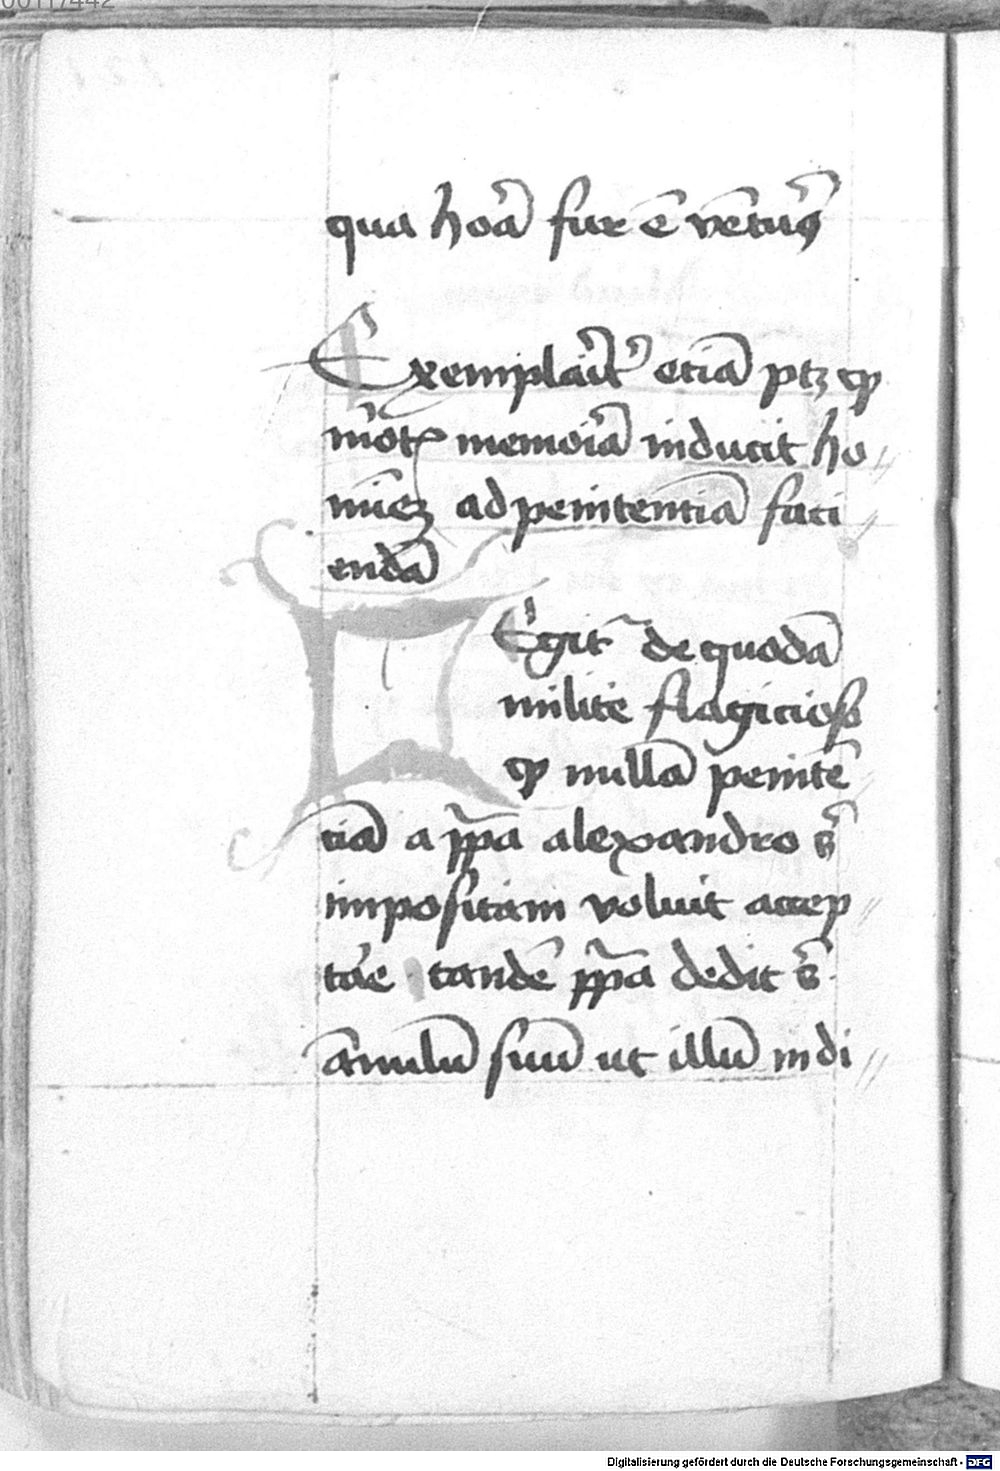 0011/442
qua hoā fur ē vētuꝰ
Exemplar̄it᷑ etiā ptꝫ ꝙ
mor̄t memoriā inducit ho
mīeꝫ ad penitentiā faci
endā
Legit᷑ de quodā
milite flagicioso
ꝙ nullā penitē
tiā a ppa alexandro s̄
impositam voluit accep
tare tandē ppa dedit s̄
ānulū suū ut illū indi
Digitalisierung gefördert durch die Deutsche Forschungsgemeinschaft - DFG